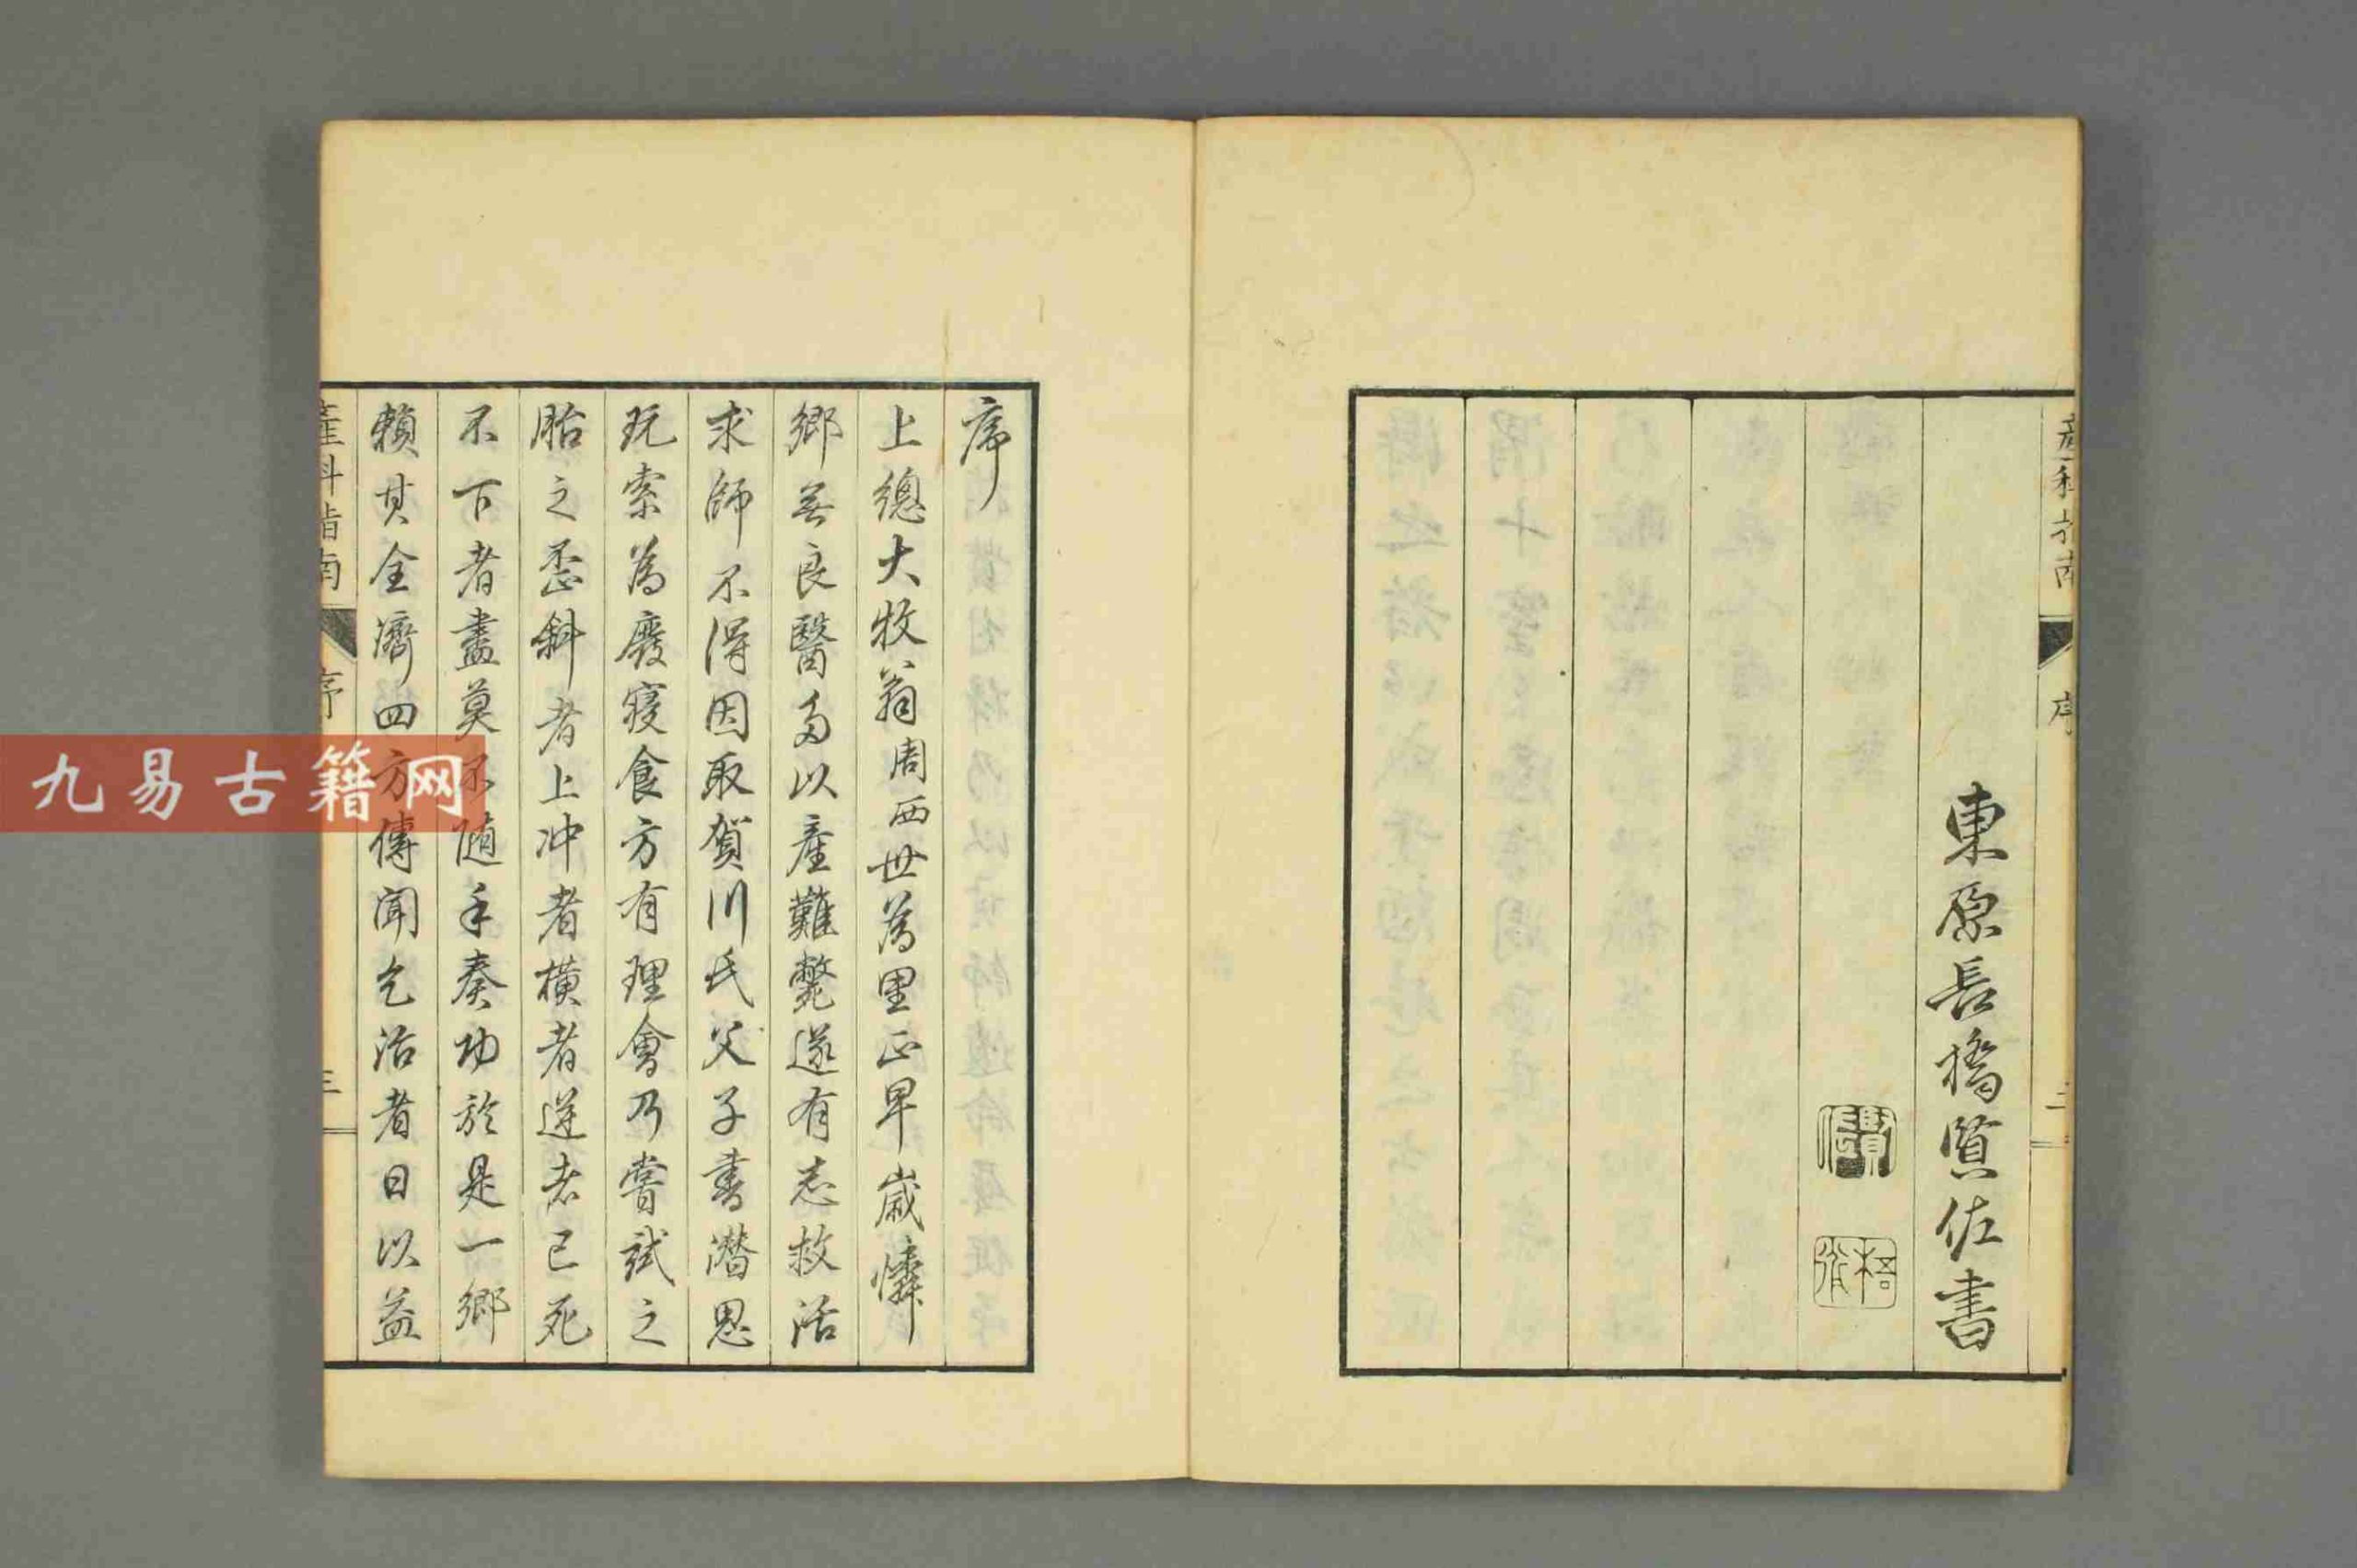 産科指南
序
二
東原長橋賢佐書
序
上總大牧翁周西世為里正早歲憐
鄉無良醫多以産難斃遂有志救活
求師不得因取賀川氏父子書潛思
玩索為廢寢食方有理會乃嘗試之
胎之歪斜者上冲者橫者逆者已死
不下者盡莫不随手奏功於是一鄉
賴其全濟四方傳聞乞治者日以益
産科指南
序
三
九易古籍网